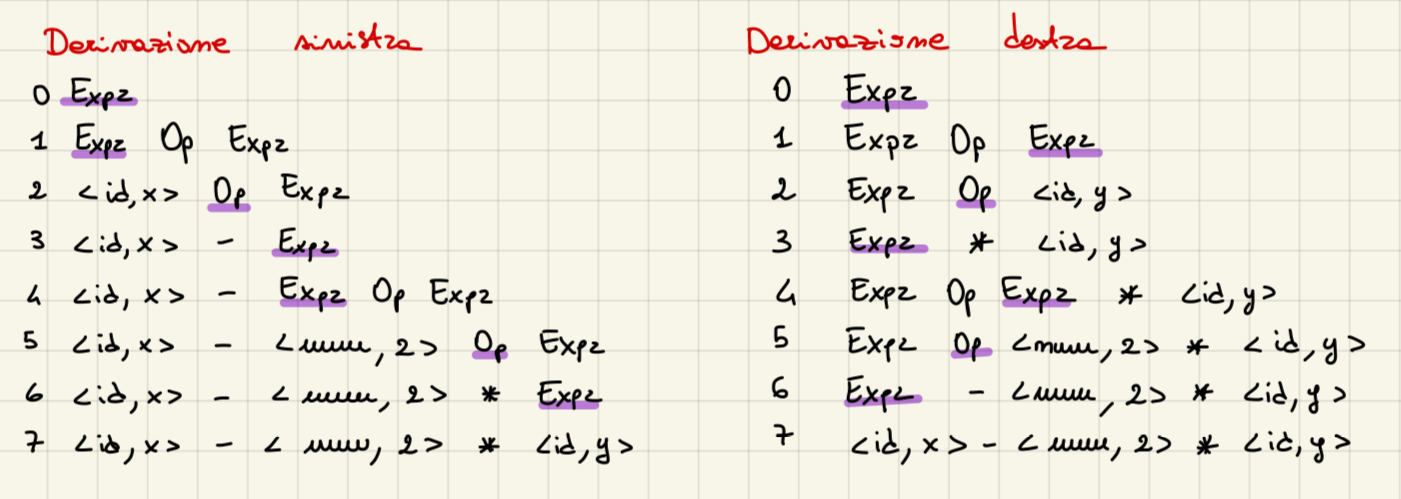 Derivazione sinistra
0 Expr
1 Expr Op Expr
2 <id, x> Op Expr
3 <id, x> - Expr
4 <id, x> - Expr Op Expr
5 <id, x> - <num, 2> Op Expr
6 <id, x> - <num, 2> * Expr
7 <id, x> - <num, 2> * <id, y>
Derivazione destra
0 Expr
1 Expr Op Expr
2 Expr Op <id, y>
3 Expr * <id, y>
4 Expr Op Expr * <id, y>
5 Expr Op <num, 2> * <id, y>
6 Expr - <num, 2> * <id, y>
7 <id, x> - <num, 2> * <id, y>